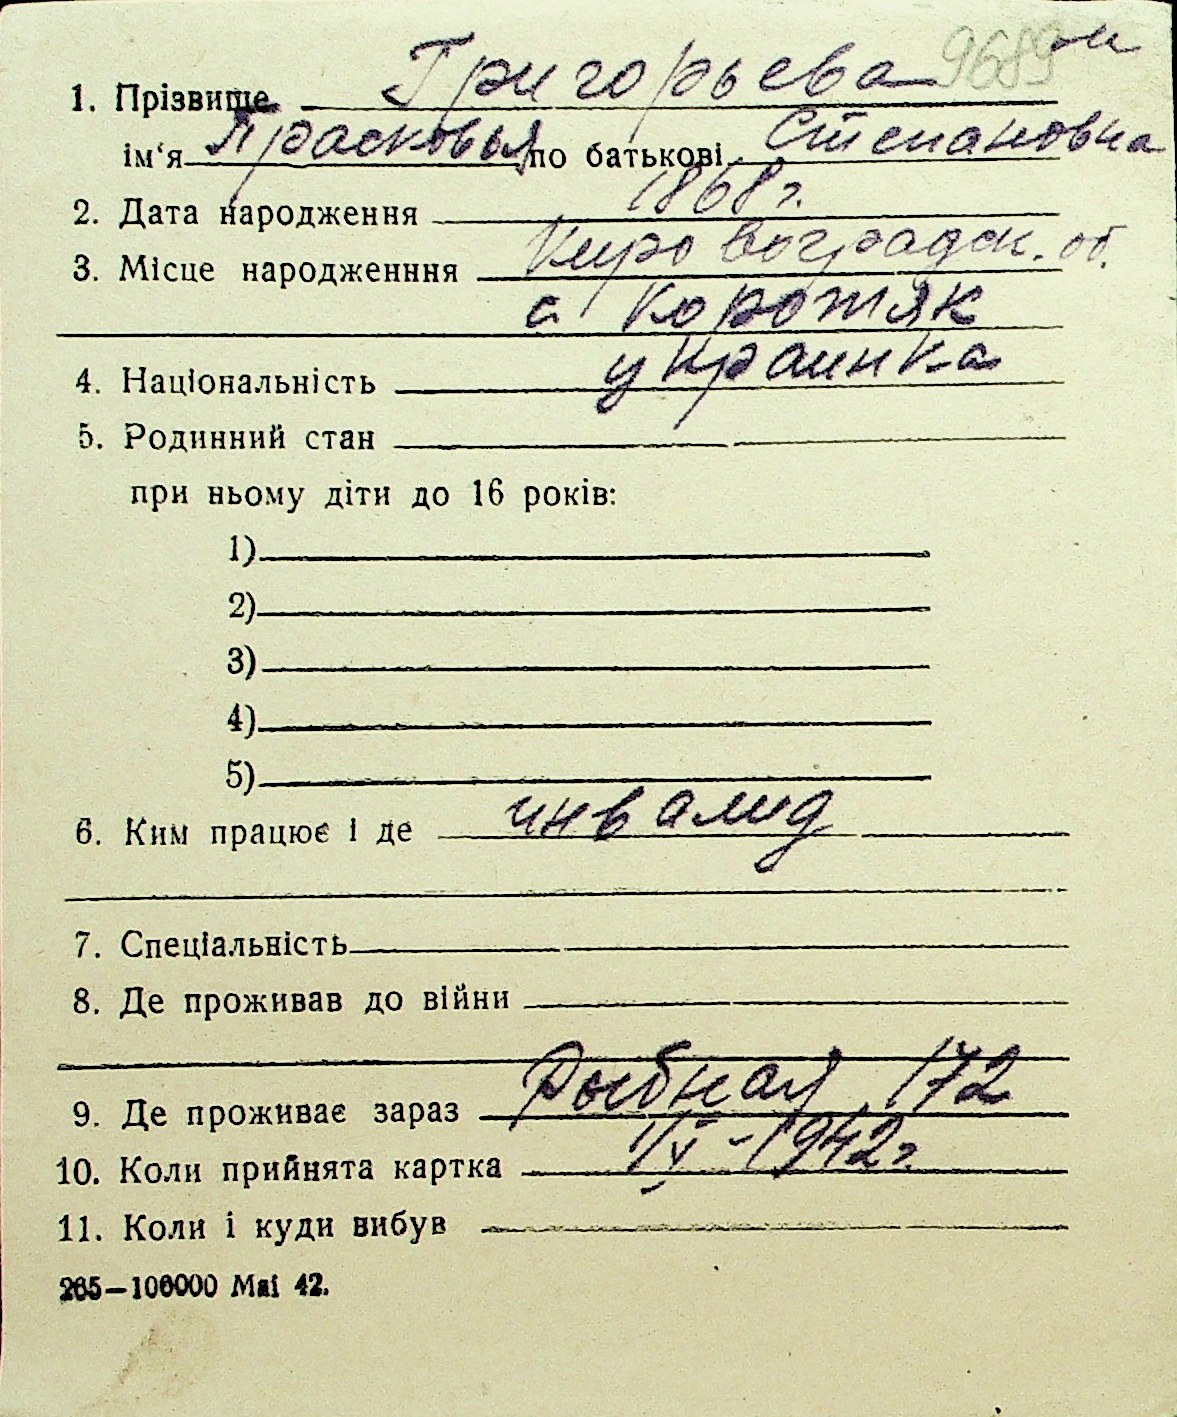 9689 м
1. Прізвище Григорьева
ім‘я Прасковья по батькові Степановна
2. Дата народження 1868 г.
3. Місце народженння Кировоградск. об.
с. Коротяк
4. Національність украинка
5. Родинний стан
при ньому діти до 16 років:
1)
2)
3)
4)
5)
6. Ким працює і де инвалид
7. Спеціальність
8. Де проживав до війни
9. Де проживає зараз Рыбная 172
10. Коли прийнята картка 1/V-1942 г.
11. Коли і куди вибув
265—100000 Mai 42.